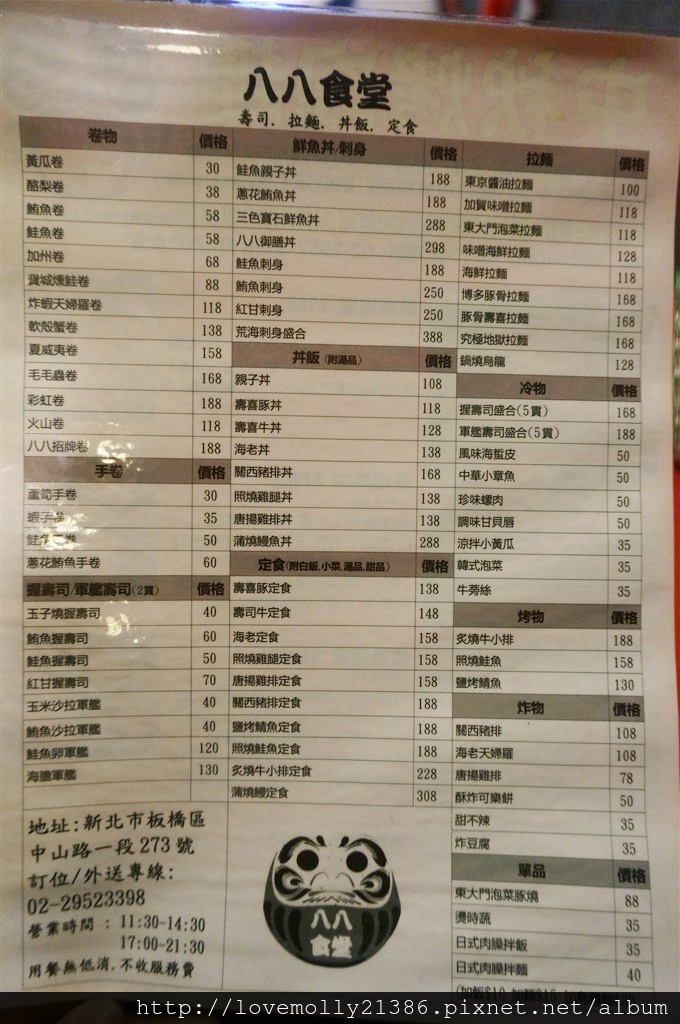 八八食堂
壽司. 拉麵. 丼飯. 定食
卷物 價格
黃瓜卷 30
酪梨卷 38
鮪魚卷 58
鮭魚卷 58
加州卷 68
費城燻鮭卷 88
炸蝦天婦羅卷 118
軟殼蟹卷 138
夏威夷卷 158
毛毛蟲卷 168
彩虹卷 188
火山卷 118
八八招牌卷 188
手卷 價格
蘆筍手卷 30
蝦子 35
鮭魚 50
蔥花鮪魚手卷 60
握壽司/軍艦壽司(2貫) 價格
玉子燒握壽司 40
鮪魚握壽司 60
鮭魚握壽司 50
紅甘握壽司 70
玉米沙拉軍艦 40
鮪魚沙拉軍艦 40
鮭魚卵軍艦 120
海膽軍艦 130
地址:新北市板橋區
中山路一段273號
訂位/外送專線:
02-29523398
營業時間 : 11:30-14:30
17:00-21:30
用餐無低消.不收服務費
鮮魚丼/刺身 價格
鮭魚親子丼 188
蔥花鮪魚丼 188
三色寶石鮮魚丼 288
八八御膳丼 298
鮭魚刺身 188
鮪魚刺身 250
紅甘刺身 250
荒海刺身盛合 388
丼飯 (附湯品) 價格
親子丼 108
壽喜豚丼 118
壽喜牛丼 128
海老丼 138
關西豬排丼 168
照燒雞腿丼 138
唐揚雞排丼 138
蒲燒鰻魚丼 288
定食(附白飯,小菜,湯品,甜品) 價格
壽喜豚定食 138
壽司牛定食 148
海老定食 158
照燒雞腿定食 158
唐揚雞排定食 158
關西豬排定食 188
鹽烤鯖魚定食 188
照燒鮭魚定食 188
炙燒牛小排定食 228
蒲燒鰻定食 308
八八
食堂
拉麵 價格
東京醬油拉麵 100
加賀味噌拉麵 118
東大門泡菜拉麵 118
味噌海鮮拉麵 128
海鮮拉麵 118
博多豚骨拉麵 168
豚骨壽喜拉麵 168
究極地獄拉麵 168
鍋燒烏龍 128
冷物 價格
握壽司盛合(5貫) 168
軍艦壽司盛合(5貫) 188
風味海蜇皮 50
中華小章魚 50
珍味螺肉 50
調味甘貝唇 50
涼拌小黃瓜 35
韓式泡菜 35
牛蒡絲 35
烤物 價格
炙燒牛小排 188
照燒鮭魚 158
鹽烤鯖魚 130
炸物 價格
關西豬排 108
海老天婦羅 108
唐揚雞排 78
酥炸可樂餅 50
甜不辣 35
炸豆腐 35
單品 價格
東大門泡菜豚燒 88
燙時蔬 35
日式肉臊拌飯 35
日式肉臊拌麵 40
(加飯$10 加麵$15
http://lovemolly21386.pixnet.net/album